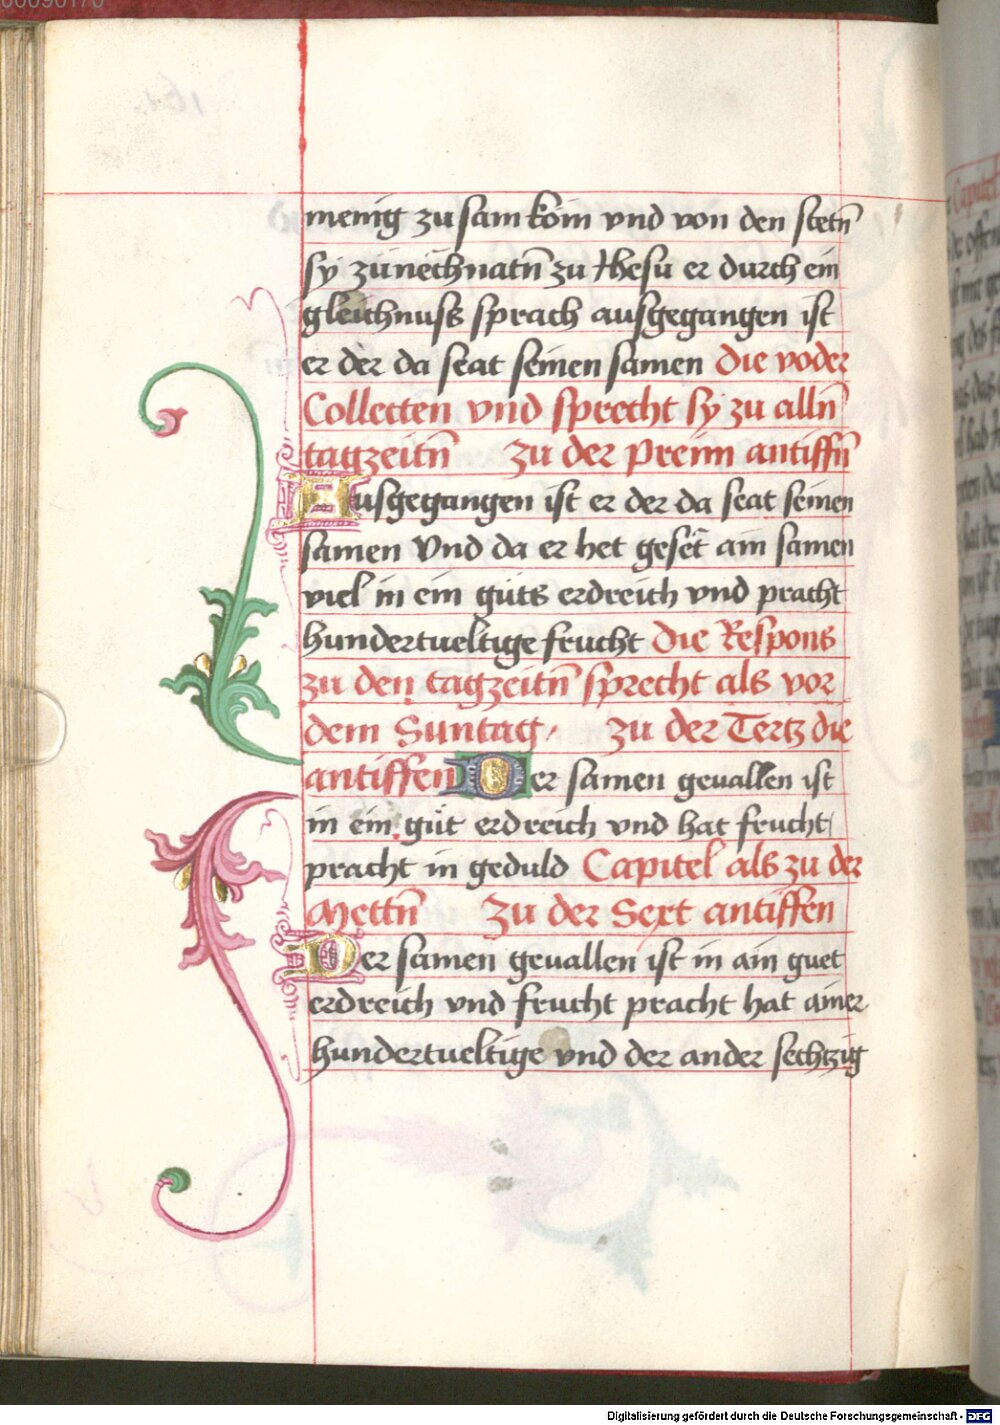 menig zu sam kom vnd von den stetn̄
sy zunechnatn̄ zu Jhesu er durch ein
gleichnuss sprach ausgegangen ist
er der da seat seinen samen die voder
Collecten vnd sprecht sy zu alln̄
tagzeitn̄ zu der preim antiffn̄
Ausgegangen ist er der da seat seinen
samen Vnd da er het geset ain samen
viel in ein guts erdreich vnd pracht
hundertueltige feucht die Respons
zu den tagzeitn̄ sprecht als vor
dem Suntag zu der Tertz die
antiffen Der samen geuallen ist
in ein gut erdreich vnd hat frucht
pracht in geduld Capitel als zu der
Mettn̄ Zu der Sext antiffen
Der samen geuallen ist in ain guet
erdreich vnd frucht pracht hat ainer
hundertueltige vnd der ander sechtzig
Digitalisierung gefördert durch die Deutsche Forschungsgemeinschaft - DFG